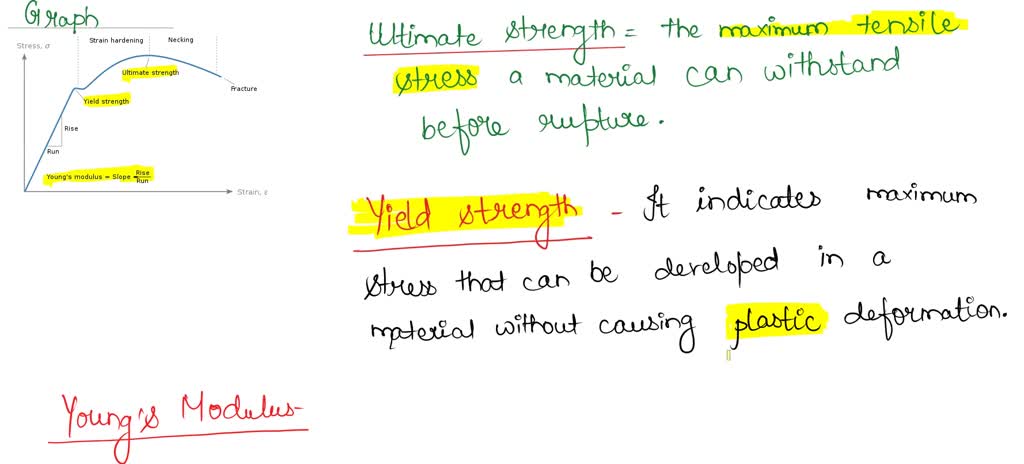 Graph
Stress, σ
Strain hardening
Necking
Ultimate strength
Fracture
Yield strength
Rise
Run
Young's modulus = Slope = Rise
Run
Strain, ε
Ultimate strength = the maximum tensile
stress a material can withstand
before rupture.
Yield strength - It indicates maximum
stress that can be developed in a
material without causing plastic deformation.
Young's Modulus-